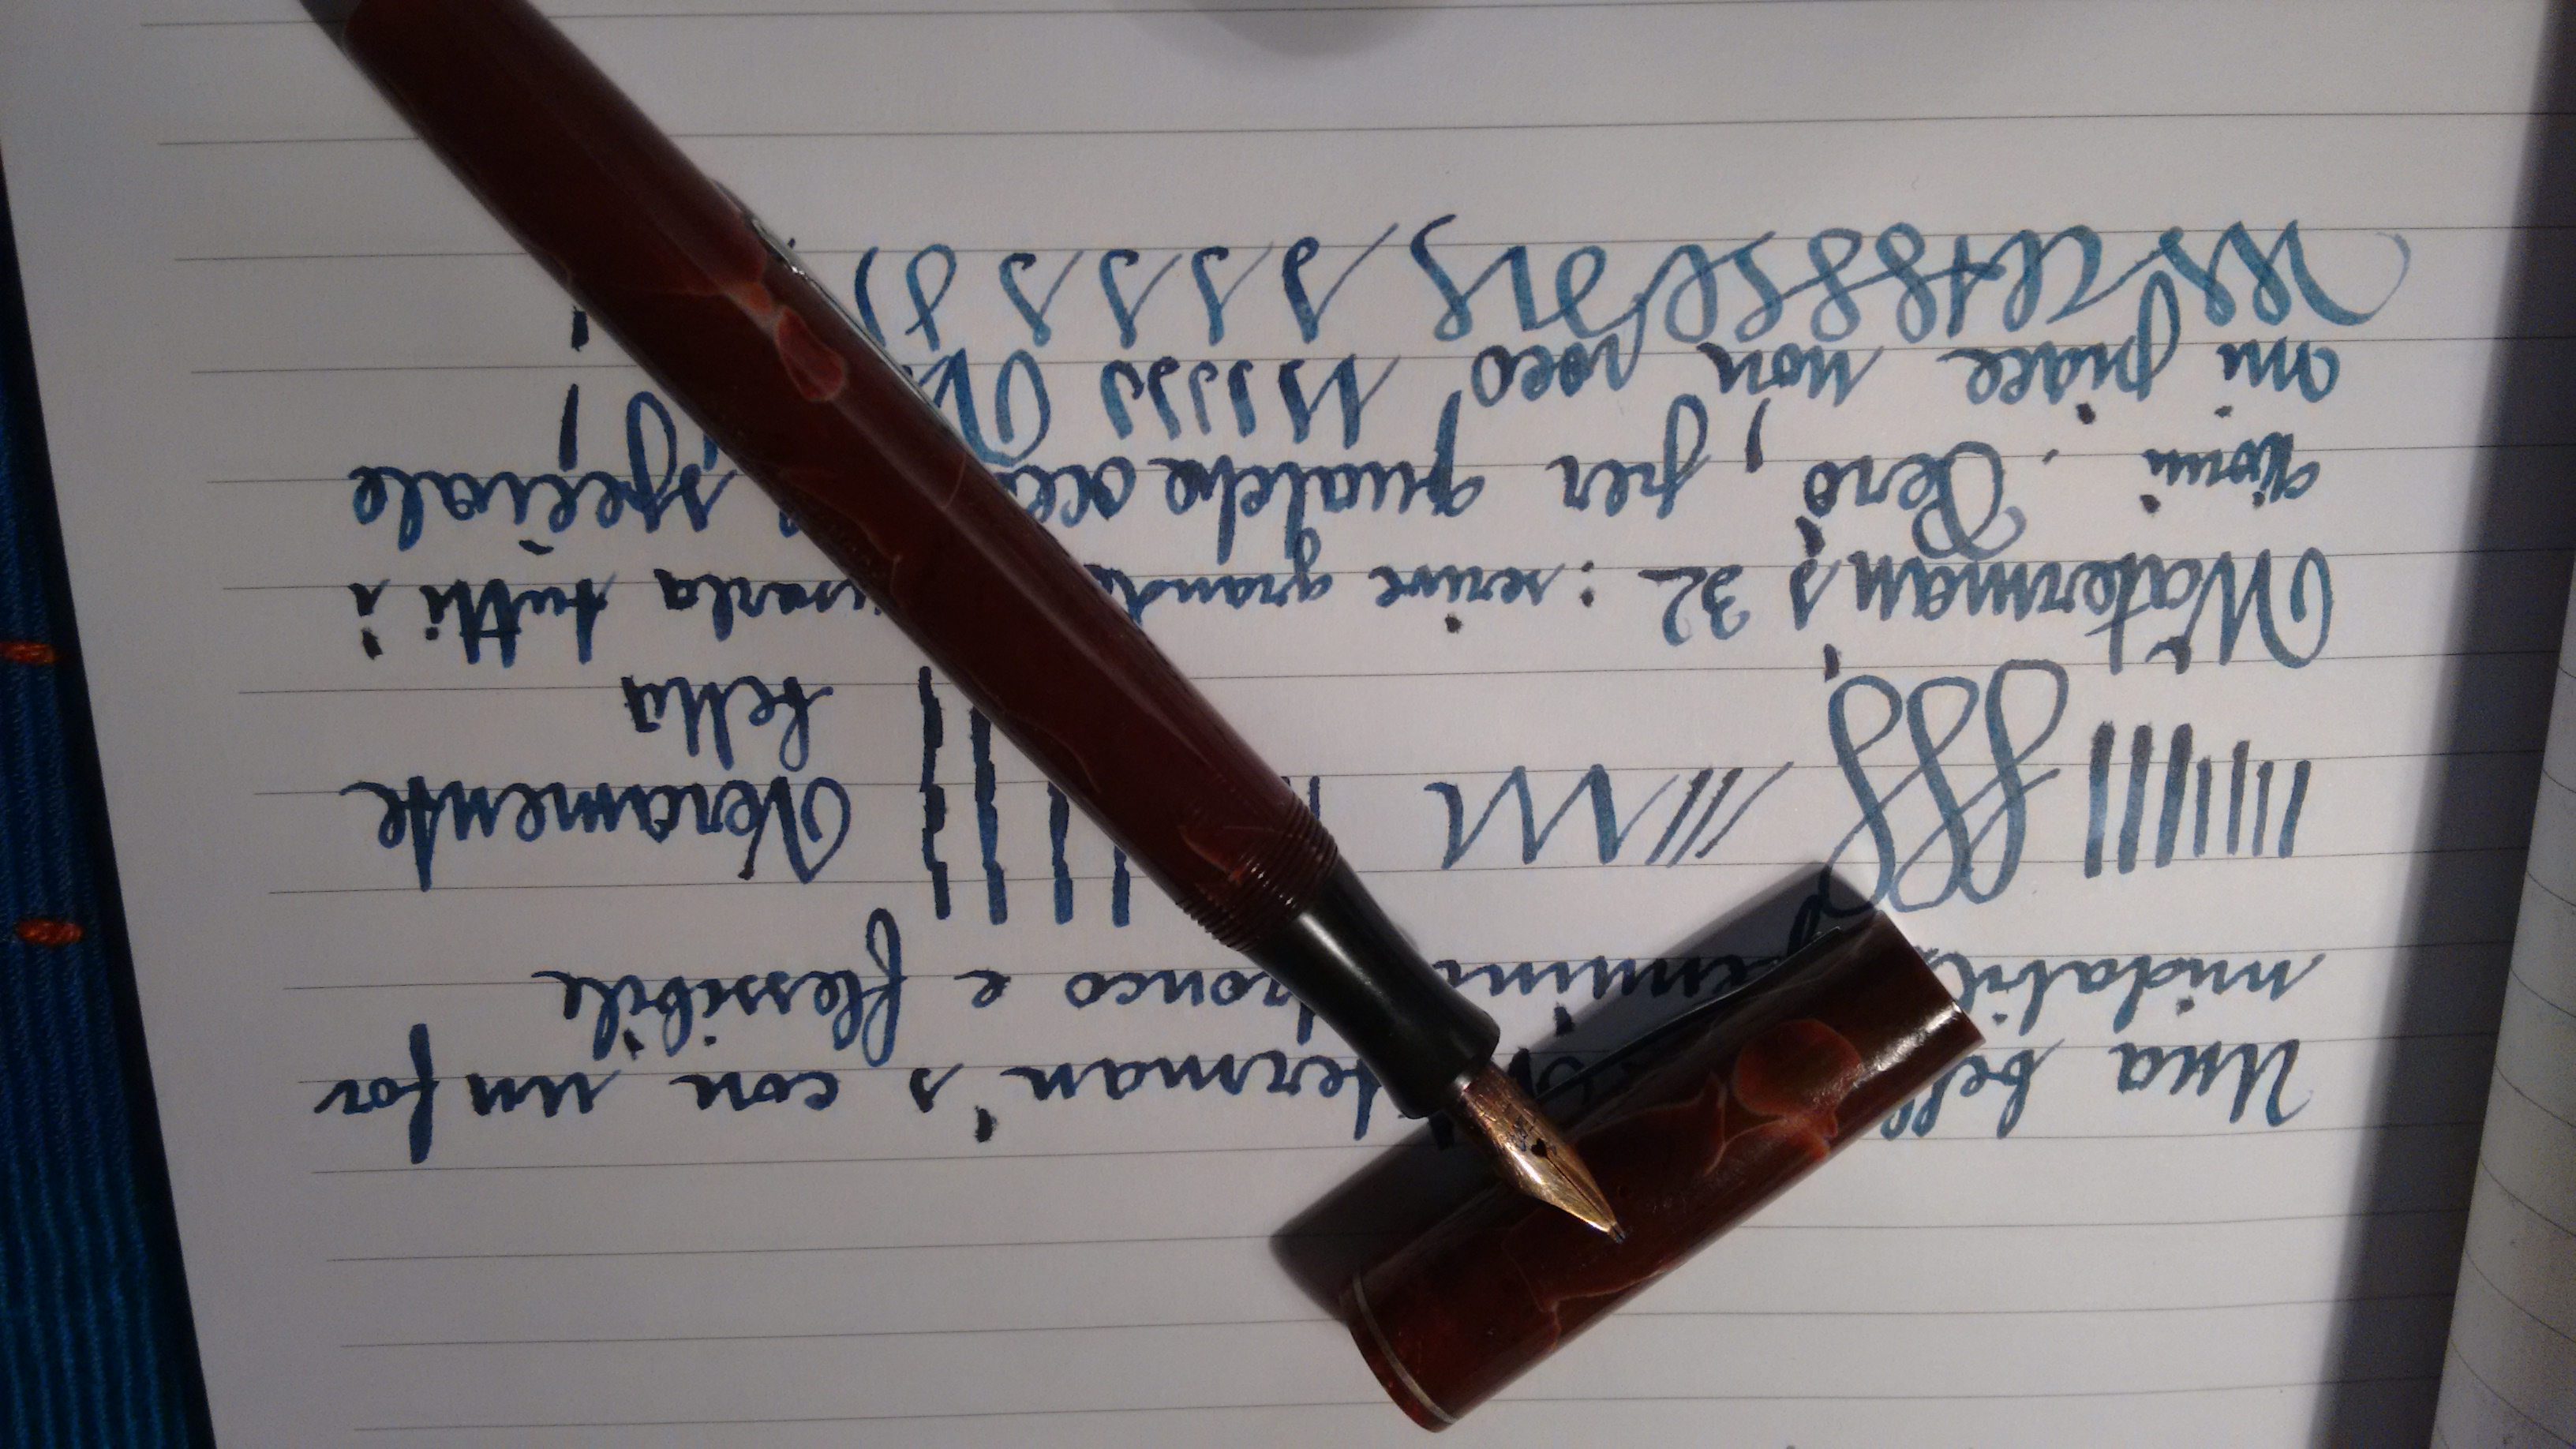 Una bell terman's con un for
midabile pennino tronco e flessibile
Veramente
bella
Waterman's 32: scrive grande usarla tutti i
giorni. Però, per qualche occ speciale
mi piace non poco